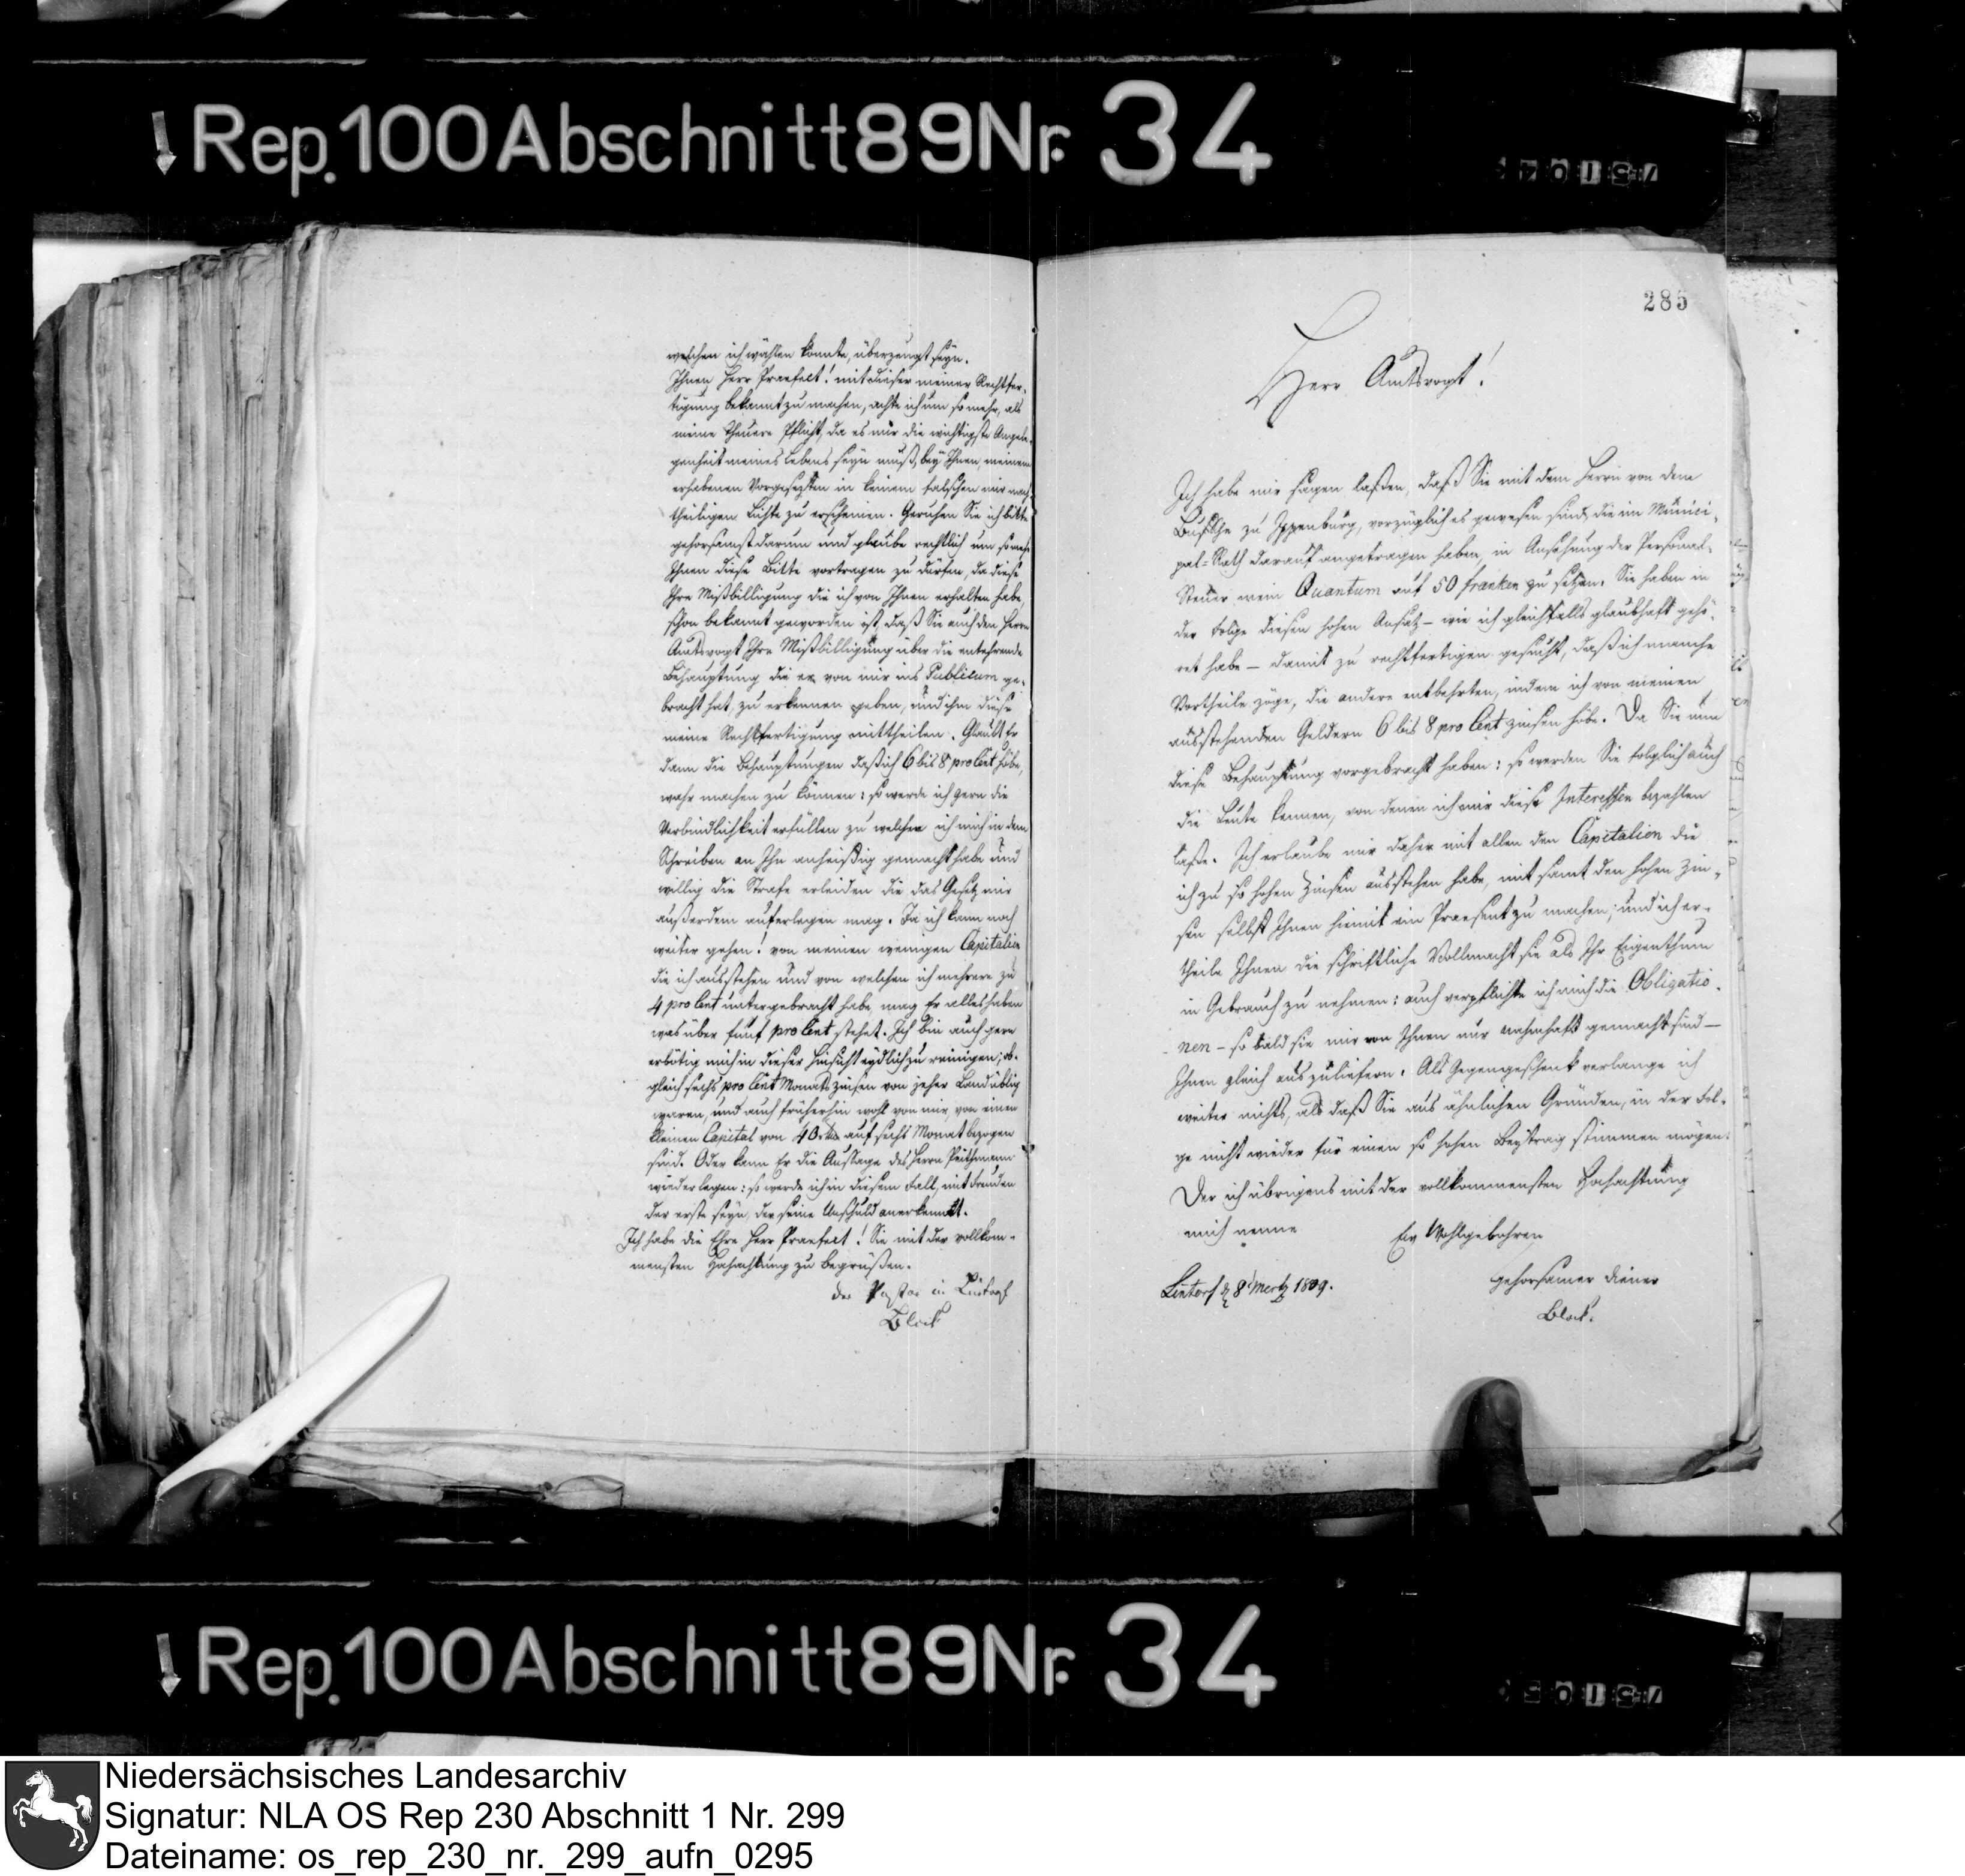 Rep. 100 Abschnitt 89 Nr. 34
welchen ich wählen konnte, überzeugt seyn.
Ihnen Herr Praefect! mit dieser meiner Rechtfer-
tigung bekannt zu machen, achte ich um so mehr, als
meine theuere Pflicht, da es mir die wichtigste Angele-
genheit meines Lebens seyn muß, bey Ihnen, meinem
erhabenen Vorgesezten in keinem falschen mir nach-
theiligen Lichte zu erscheinen. Geruhen Sie ich bitte
gehorsamst darum und glaube rechtlich um so mehr
Ihnen diese Bitte vortragen zu dürfen, da diese
Ihre Mißbilligung die ich von Ihnen erhalten habe,
schon bekannt geworden ist, daß Sie auch den Herrn
Amtsvogt Ihre Mißbilligung über die entehrende
Behauptung die er von mir ins Publicum ge-
bracht hat, zu erkennen geben, und ihm diese
meine Rechtfertigung mittheilen. Glaubt Er
dann die Behauptungen daß ich 6 bis 8 pro Cent höbe,
wahr machen zu können: so werde ich gern die
Verbindlichkeit erfüllen zu welcher ich mich in dem
Schreiben an Ihn anheischig gemacht habe und
willig die Strafe erleiden die das Gesetz mir
außerdem auferlegen mag. Ja ich kann noch
weiter gehen! von meinen wenigen Capitalien
die ich ausstehen und von welchen ich mehrere zu
4 pro Cent untergebracht habe, mag Er alles haben
was über fünf pro Cent stehet. Ich bin auch gern
erbötig mich in dieser Hinsicht eydlich zu reinigen; ob-
gleich sechs pro Cent Monats zinsen von jeher Landüblig
waren, und auch früherhin wohl von mir, von einen
kleinen Capital von 40 auf sechs Monat bezogen
sind. Oder kann Er die Aussage des Herrn Peithmann
wiederlegen: so werde ich in diesem Fall, mit Freuden
der erste seyn, der seine Unschuld anerkennt.
Ich habe die Ehre Herr Praefect! Sie mit der vollkom-
mensten Hochachtung zu begrüßen.
der Pastor in Lintorf
Block
285
Herr Amtsvogt!
Ich habe mir sagen laßen, daß Sie mit dem Herrn von dem
Bussche zu Ippenburg, vorzüglich es gewesen sind, die im Munici-
pal-Rath darauf angetragen haben, in Ansehung der Personal-
Steuer mein Quantum auf 50 franken zu setzen. Sie haben in
der Folge diesen hohen Ansatz - wie ich gleichfalls glaubhaft gehö-
ret habe - damit zu rechtfertigen gesucht, daß ich manche
Vortheile zöge, die andere entbehrten, indem ich von meinen
ausstehenden Geldern 6 bis 8 pro Cent zinsen höbe. Da Sie nun
diese Behauptung vorgebracht haben: so werden Sie folglich auch
die Leute kennen, von denen ich mir diese Interessen bezahlen
laße. Ich erlaube mir daher mit allen den Capitalien die
ich zu so hohen Zinsen ausstehen habe, mit samt den hohen Zin-
sen selbst Ihnen hiemit ein Praesent zu machen; und ich er-
theile Ihnen die schriftliche Vollmacht sie als Ihr Eigenthum
in Gebrauch zu nehmen: auch verpflichte ich mich die Obligatio-
nen - so bald sie mir von Ihnen nur nahmhaft gemacht sind -
Ihnen gleich auszuliefern. Als Gegengeschenk verlange ich
weiter nichts, als daß Sie aus ähnlichen Gründen, in der Fol-
ge nicht wieder für einen so hohen Beytrag stimmen mögen.
Der ich übrigens mit der vollkommensten Hochachtung
mich nenne
Ew Wohlgebohren
Lintorf d 8 Mertz 1809.
gehorsamer Diener
Block.
Rep. 100 Abschnitt 89 Nr. 34
Niedersächsisches Landesarchiv
Signatur: NLA OS Rep 230 Abschnitt 1 Nr. 299
Dateiname: os_rep_230_nr._299_aufn_0295